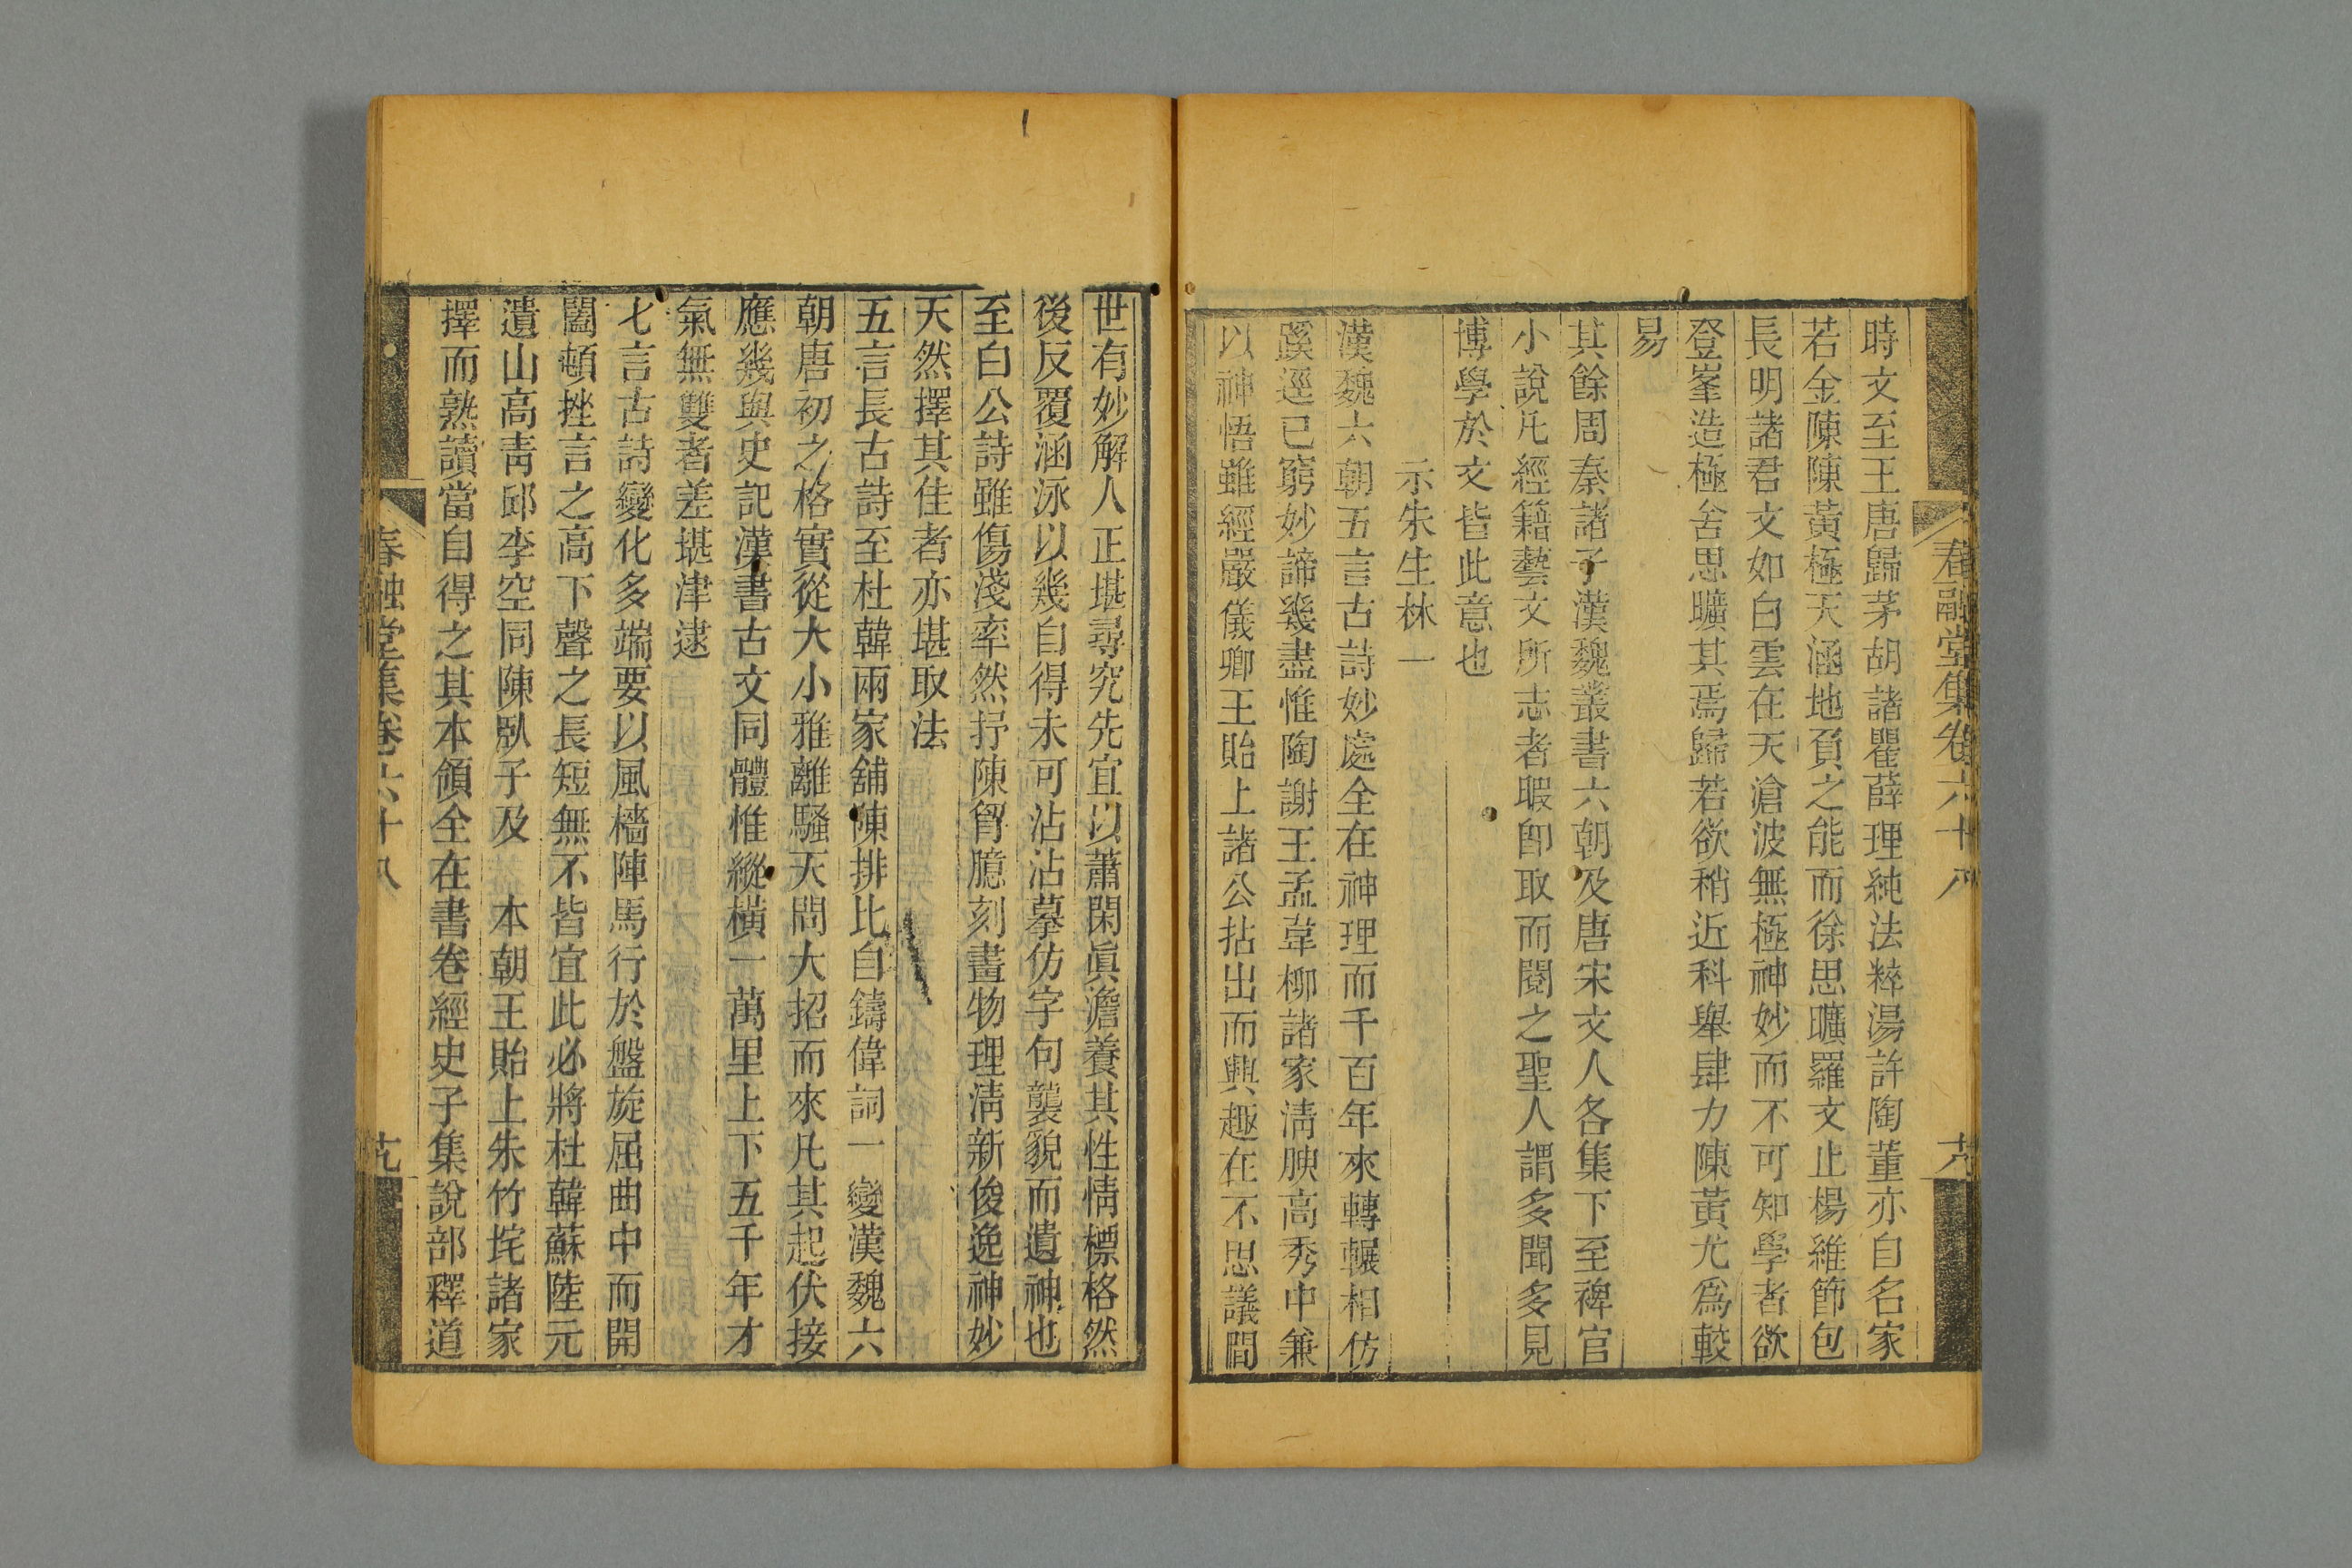 春融堂集卷六十八
時文至王唐歸茅胡諸瞿薛理純法粹湯許陶董亦自名家
若金陳陳黃極天涵地負之能而徐思曠羅文止楊維節包
長明諸君文如白雲在天滄波無極神妙而不可知學者欲
登峯造極舍思曠其焉歸若欲稍近科舉肆力陳黃尤爲較
易
其餘周秦諸子漢魏叢書六朝及唐宋文人各集下至稗官
小說凡經籍藝文所志者暇卽取而閱之聖人謂多聞多見
博學於文皆此意也
示朱生林一
漢魏六朝五言古詩妙處全在神理而千百年來轉輾相仿
蹊逕已窮妙諦幾盡惟陶謝王孟韋柳諸家淸腴高秀中兼
以神悟雖經嚴儀卿王貽上諸公拈出而興趣在不思議間
世有妙解人正堪尋究先宜以蕭閑眞澹養其性情標格然
後反覆涵泳以幾自得未可沾沾摹仿字句襲貌而遺神也
至白公詩雖傷淺率然抒陳胷臆刻畫物理淸新俊逸神妙
天然擇其佳者亦堪取法
五言長古詩至杜韓兩家舖陳排比自鑄偉詞一變漢魏六
朝唐初之格實從大小雅離騷天問大招而來凡其起伏接
應幾與史記漢書古文同體惟縱橫一萬里上下五千年才
氣無雙者差堪津逮
七言古詩變化多端要以風檣陣馬行於盤旋屈曲中而開
闔頓挫言之高下聲之長短無不皆宜此必將杜韓蘇陸元
遺山高靑邱李空同陳臥子及 本朝王貽上朱竹垞諸家
擇而熟讀當自得之其本領全在書卷經史子集說部釋道
春融堂集卷六十八